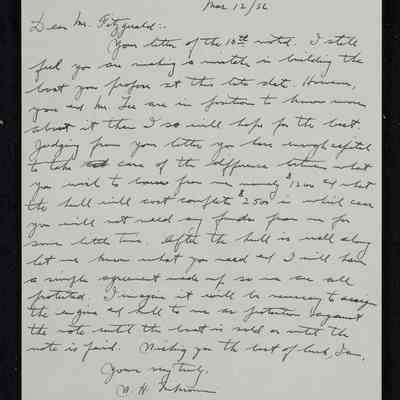 Mar 12/36
Dear Mr. Fitzgerald:-
Your letter of the 10th noted. I still
feel you are making a mistake in building the
boat you propose at this late date. However,
you and Mr. Lee are in position to know more
about it than I so will hope for the best.
Judging from your letter you have enough capital
to take care of the difference between what
you wish to borrow from me namely $1500 and what
the hull will cost complete $2500 in which case
you will not need any funds from me for
some little time. After the hull is well along
let me know what you need and I will have
a simple agreement made up so we are all
protected. I imagine it will be necessary to assign
the engine and hull to me as protection against
the note until the boat is sold or until the
note is paid. Wishing you the best of luck, I am,
Yours very truly,
H.